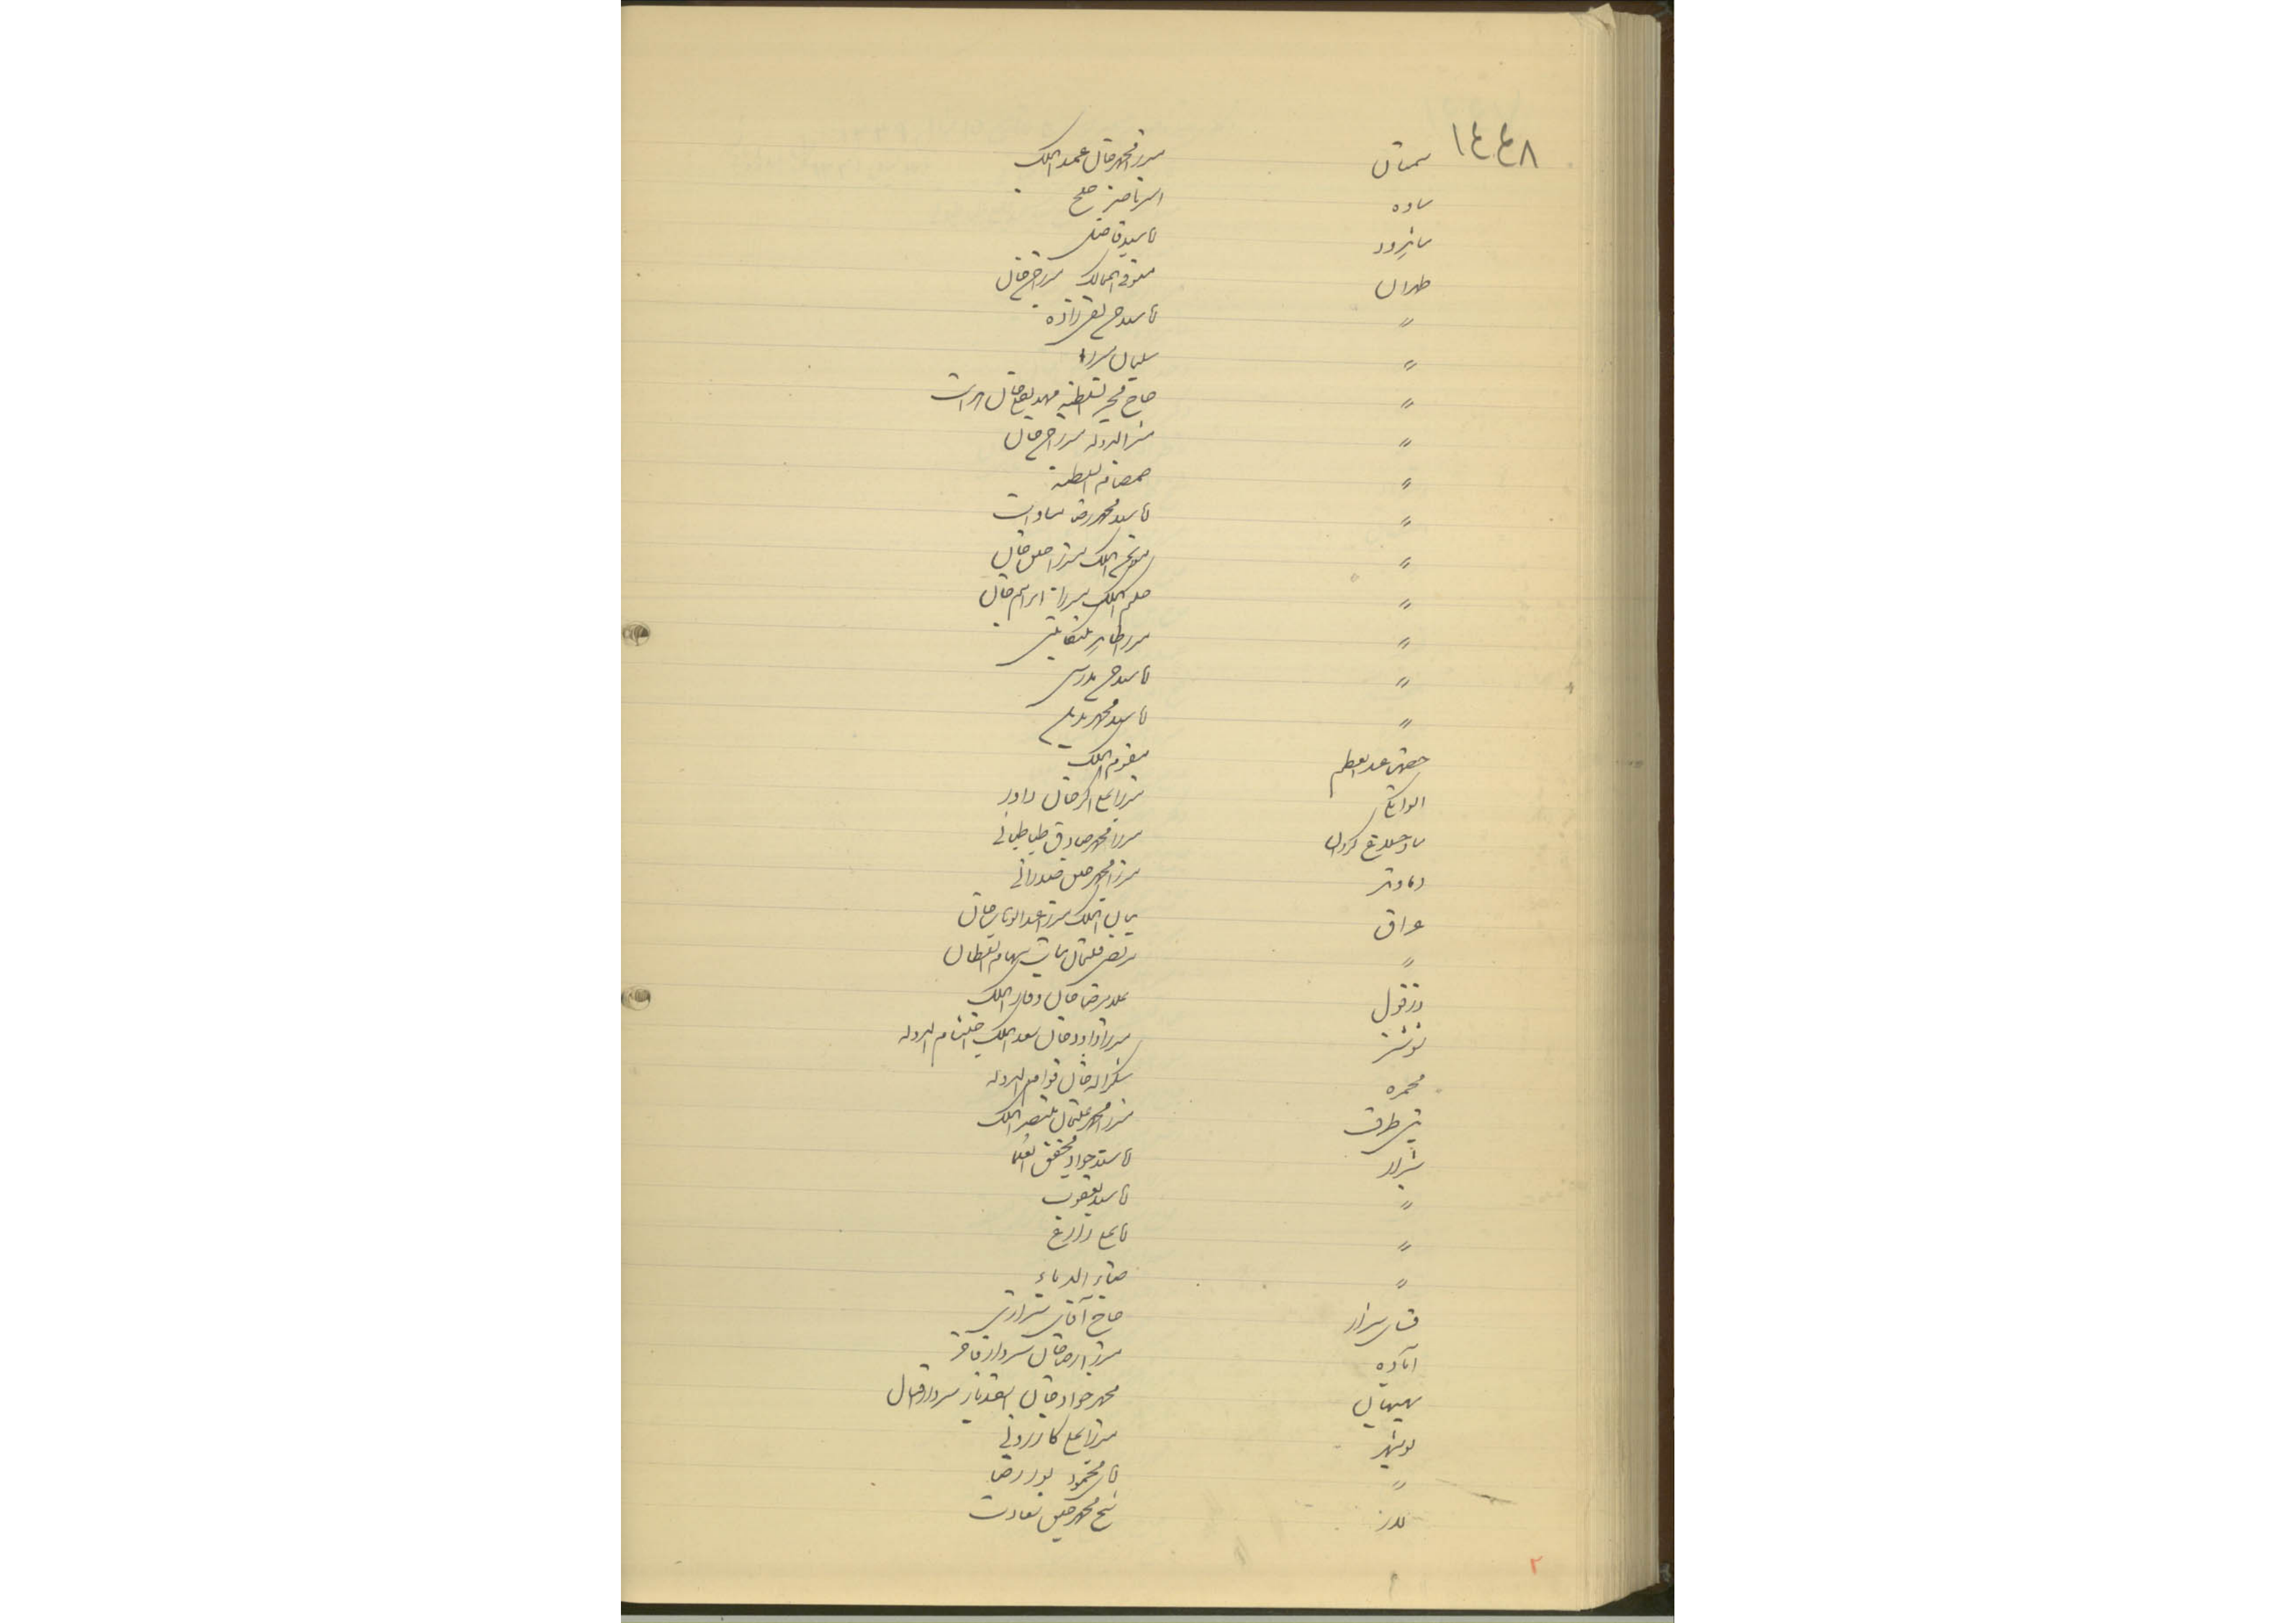 ۱۴۴۸
سمنان میرزا محمد خان عمید الملک
ساوه ناصر
شاهرود آقا سید فاضل
طهران مستوفی الممالک میرزا حسن خان
〃 آقا سید حسن تقی زاده
〃 سلیمان میرزا
〃 حاج مخبر السلطنه مهدیقلی خان هدایت
〃 مشیر الدوله میرزا حسن خان
〃 صمصام السلطنه
〃 آقا سید محمد رضا مساوات
〃 مؤتمن الملک میرزا حسین خان
〃 حکیم الملک میرزا ابراهیم خان
〃 میرزا طاهر تنکابنی
〃 آقا سید حسن مدرس
〃 آقا سید محمد تدین
حضرت عبد العظیم مقوم الملک
ایوانکی میرزا علی اکبر خان داور
ساوجبلاغ میرزا محمد صادق طباطبائی
دماوند میرزا محمد حسین صدرائی
عراق بیان الملک میرزا عبد الوهاب خان
〃 مرتضی قلیخان بیات سهام السلطان
دزفول علیرضا خان وقار الملک
شوشتر میرزا داود خان سعد الملک احتشام الدوله
محمره شکر اله خان قوام الدوله
میرزا محمد علیخان منتصر الملک
شیراز آقا سید جواد محقق العلما
〃 آقا سید یعقوب
〃 آقا علی زارع
〃 ضیاء الادباء
قشقائی حاج آقای شیرازی
آباده میرزا رضا خان سردار فاخر
بهبهان محمد جواد خان سردار اقبال
بوشهر میرزا علی کازرونی
〃 آقا محمود پور رضا
شیخ محمد حسین سعادت
۲